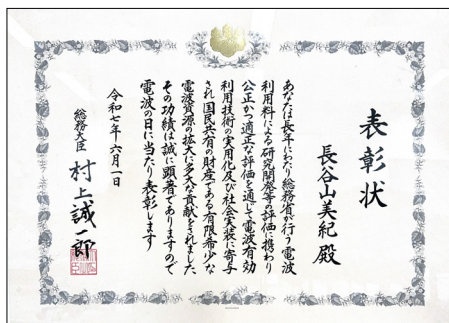 表彰状
長谷山美紀 殿
あなたは長年にわたり総務省が行う電波
利用料による研究開発等の評価に携わり
公正かつ適正な評価を通じて電波有効
利用技術の実用化及び社会実装に寄与
され国民共有の財産である有限希少な
電波資源の拡大に多大な貢献をされました
その功績は誠に顕著でありますので
電波の日に当たり表彰します
令和七年六月一日
総務大臣 村上誠一郎